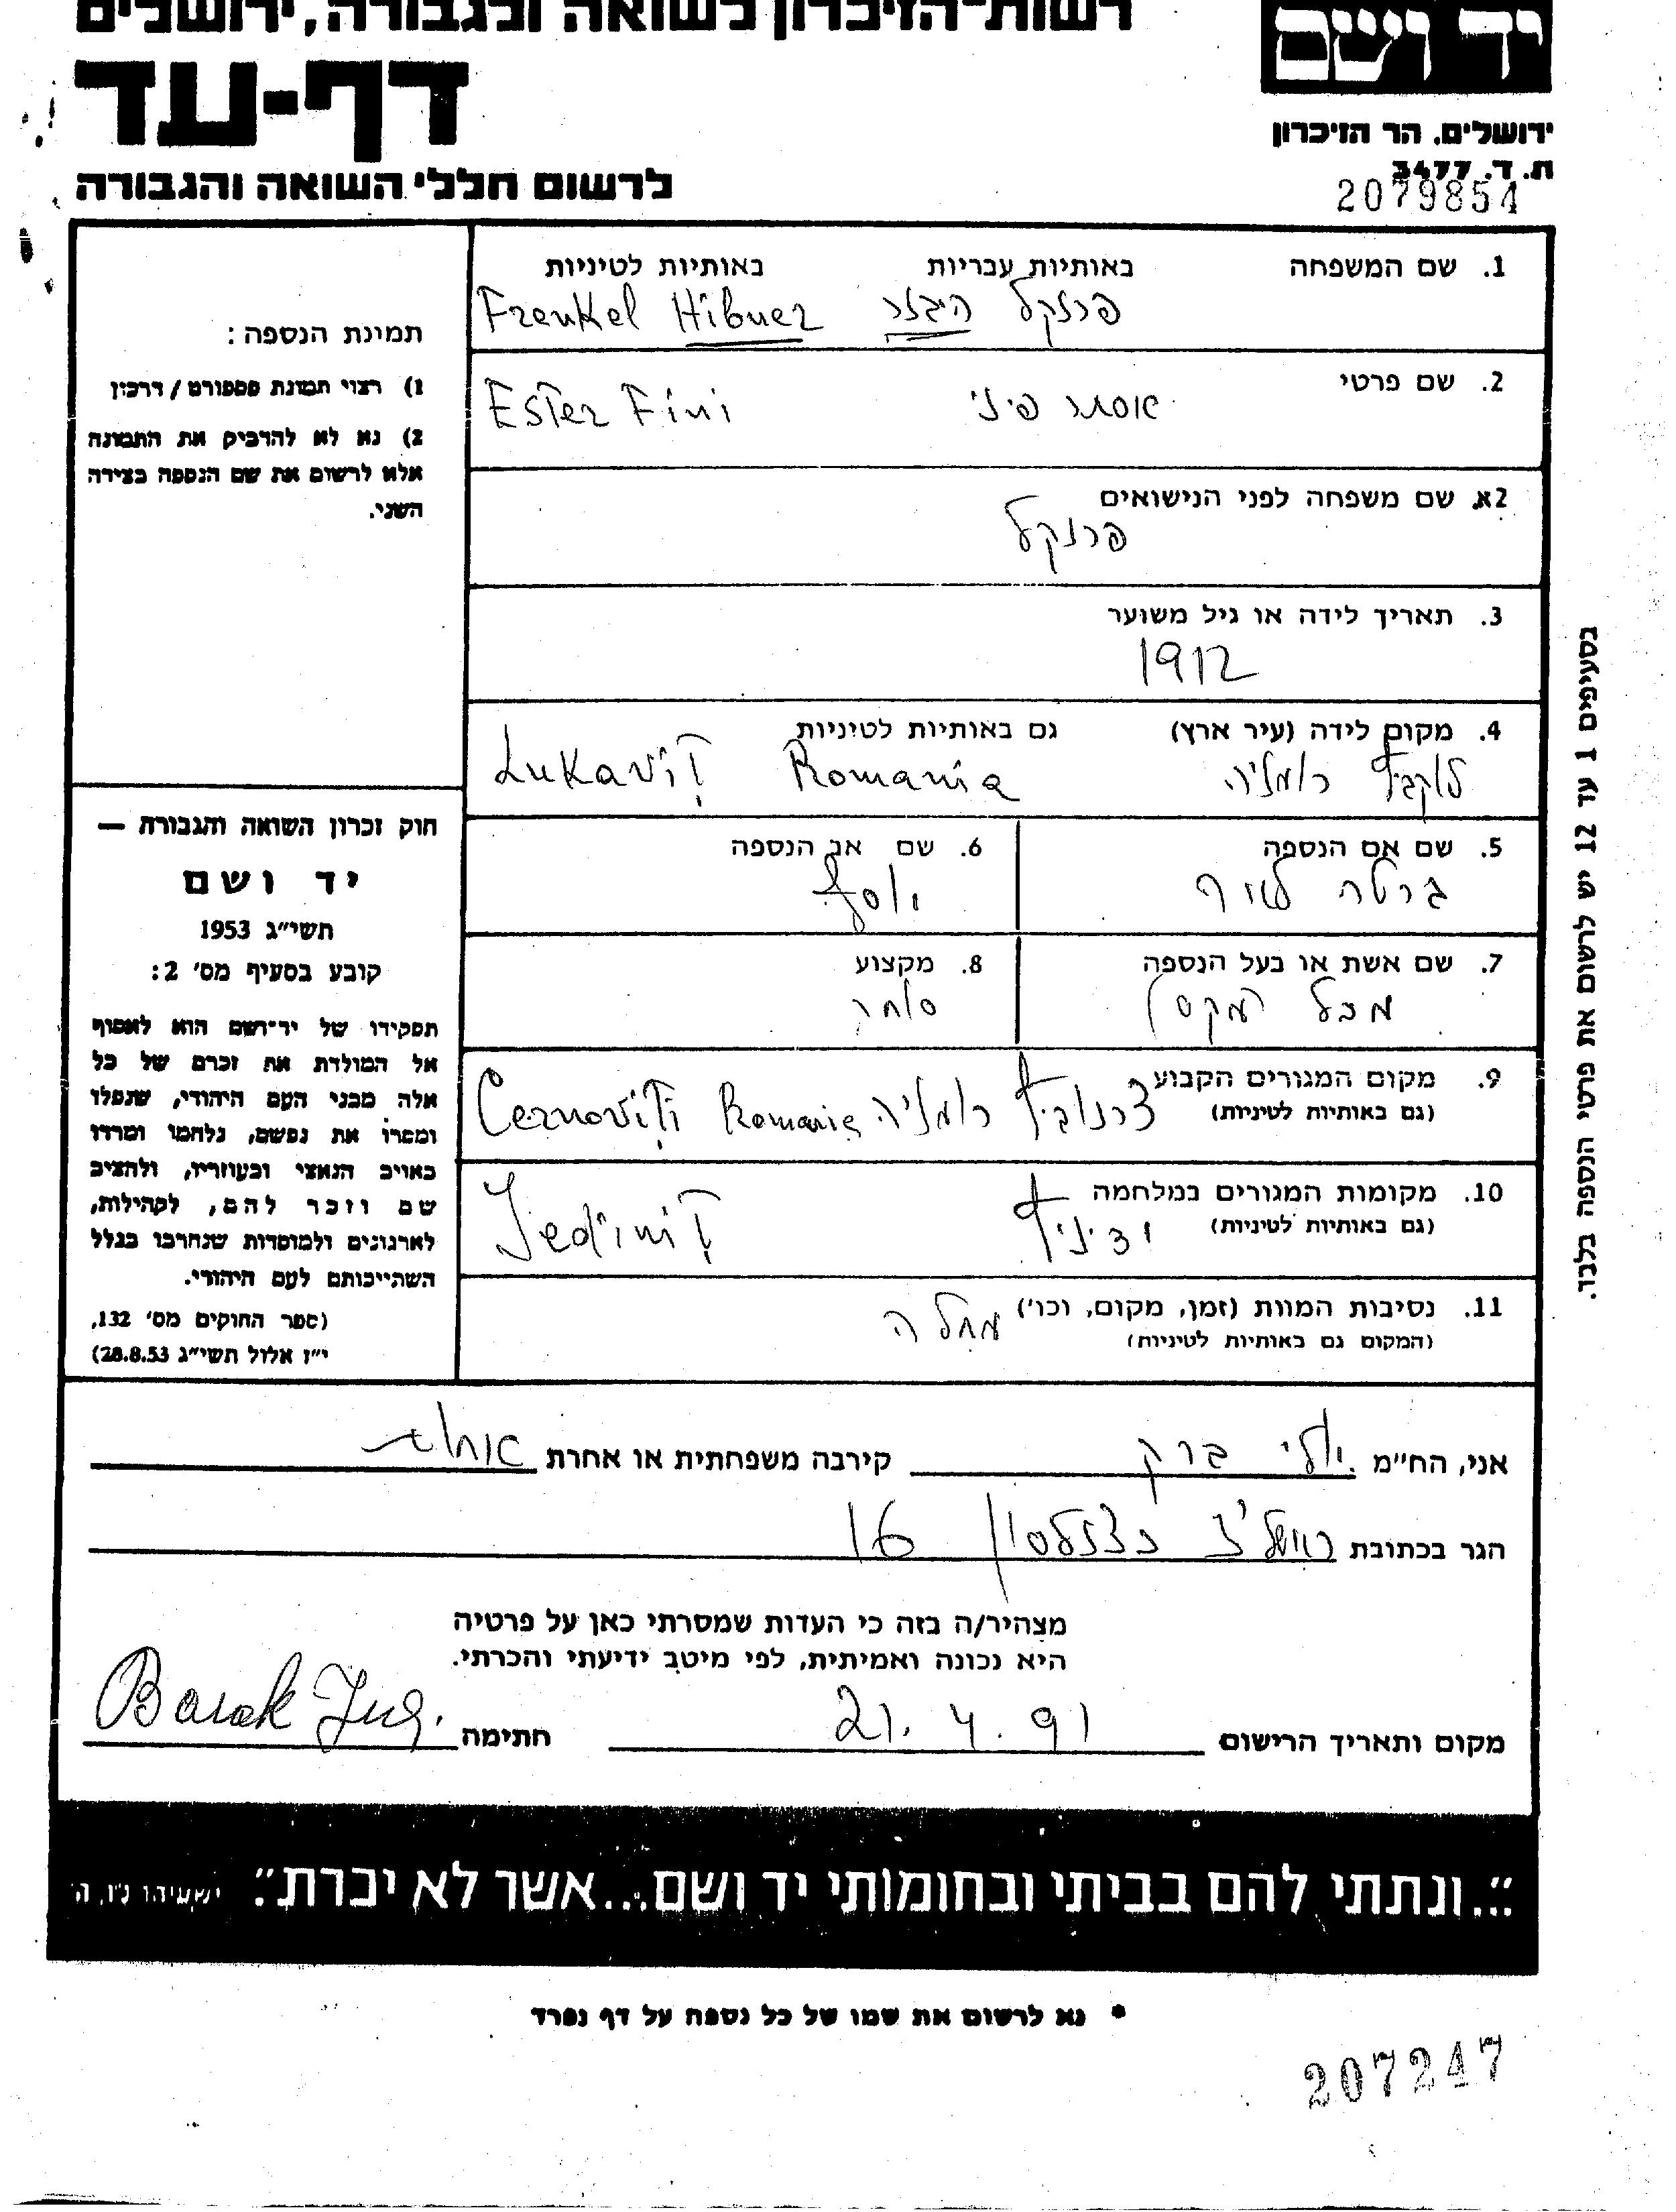 רשות-הזיכרון לשואה ולגבורה, ירושלים
יד ושם
דף-עד
ירושלים, הר הזיכרון
ת. ד. 3477
לרשום חללי השואה והגבורה
2079854
1. שם המשפחה באותיות עבריות באותיות לטיניות
פרנקל היבנר Frenkel Hibner
2. שם פרטי
אסתר פיני Ester Fini
2א. שם משפחה לפני הנישואים
פרנקל
3. תאריך לידה או גיל משוער
1912
4. מקום לידה (עיר ארץ) גם באותיות לטיניות
לוקביץ רומניה Lukaviț Romania
5. שם אם הנספה
ברטה
6. שם אב הנספה
יוסף
7. שם אשת או בעל הנספה
8. מקצוע
סוחר
9. מקום המגורים הקבוע
(גם באותיות לטיניות)
צרנוביץ רומניה Cernoviți Romania
10. מקומות המגורים במלחמה
(גם באותיות לטיניות)
ידיניץ Jediniț
11. נסיבות המוות (זמן, מקום, וכו') מחלה
(המקום גם באותיות לטיניות)
תמונת הנספה:
1) רצוי תמונת פספורט / דרכון
2) נא לא להדביק את התמונה
אלא לרשום את שם הנספה בצידה
השני.
חוק זכרון השואה והגבורה —
יד ושם
תשי״ג 1953
קובע בסעיף מס' 2:
תפקידו של יד־ושם הוא לאסוף
אל המולדת את זכרם של כל
אלה מבני העם היהודי, שנפלו
ומסרו את נפשם, נלחמו ומרדו
באויב הנאצי ובעוזריו, ולהציב
שם וזכר להם, לקהילות,
לארגונים ולמוסדות שנחרבו בגלל
השתייכותם לעם היהודי.
(ספר החוקים מס' 132,
י״ז אלול תשי״ג 28.8.53)
בסעיפים 1 עד 12 יש לרשום את פרטי הנספה בלבד.
אני, הח״מ ברק קירבה משפחתית או אחרת אחות
הגר בכתובת ראשל״צ כצנלסון 16
מצהיר/ה בזה כי העדות שמסרתי כאן על פרטיה
היא נכונה ואמיתית, לפי מיטב ידיעתי והכרתי.
מקום ותאריך הרישום 21.4.91 חתימה Barak
״...ונתתי להם בביתי ובחומותי יד ושם...אשר לא יכרת״. ישעיהו נ״ו, ה'
* נא לרשום את שמו של כל נספה על דף נפרד
207247